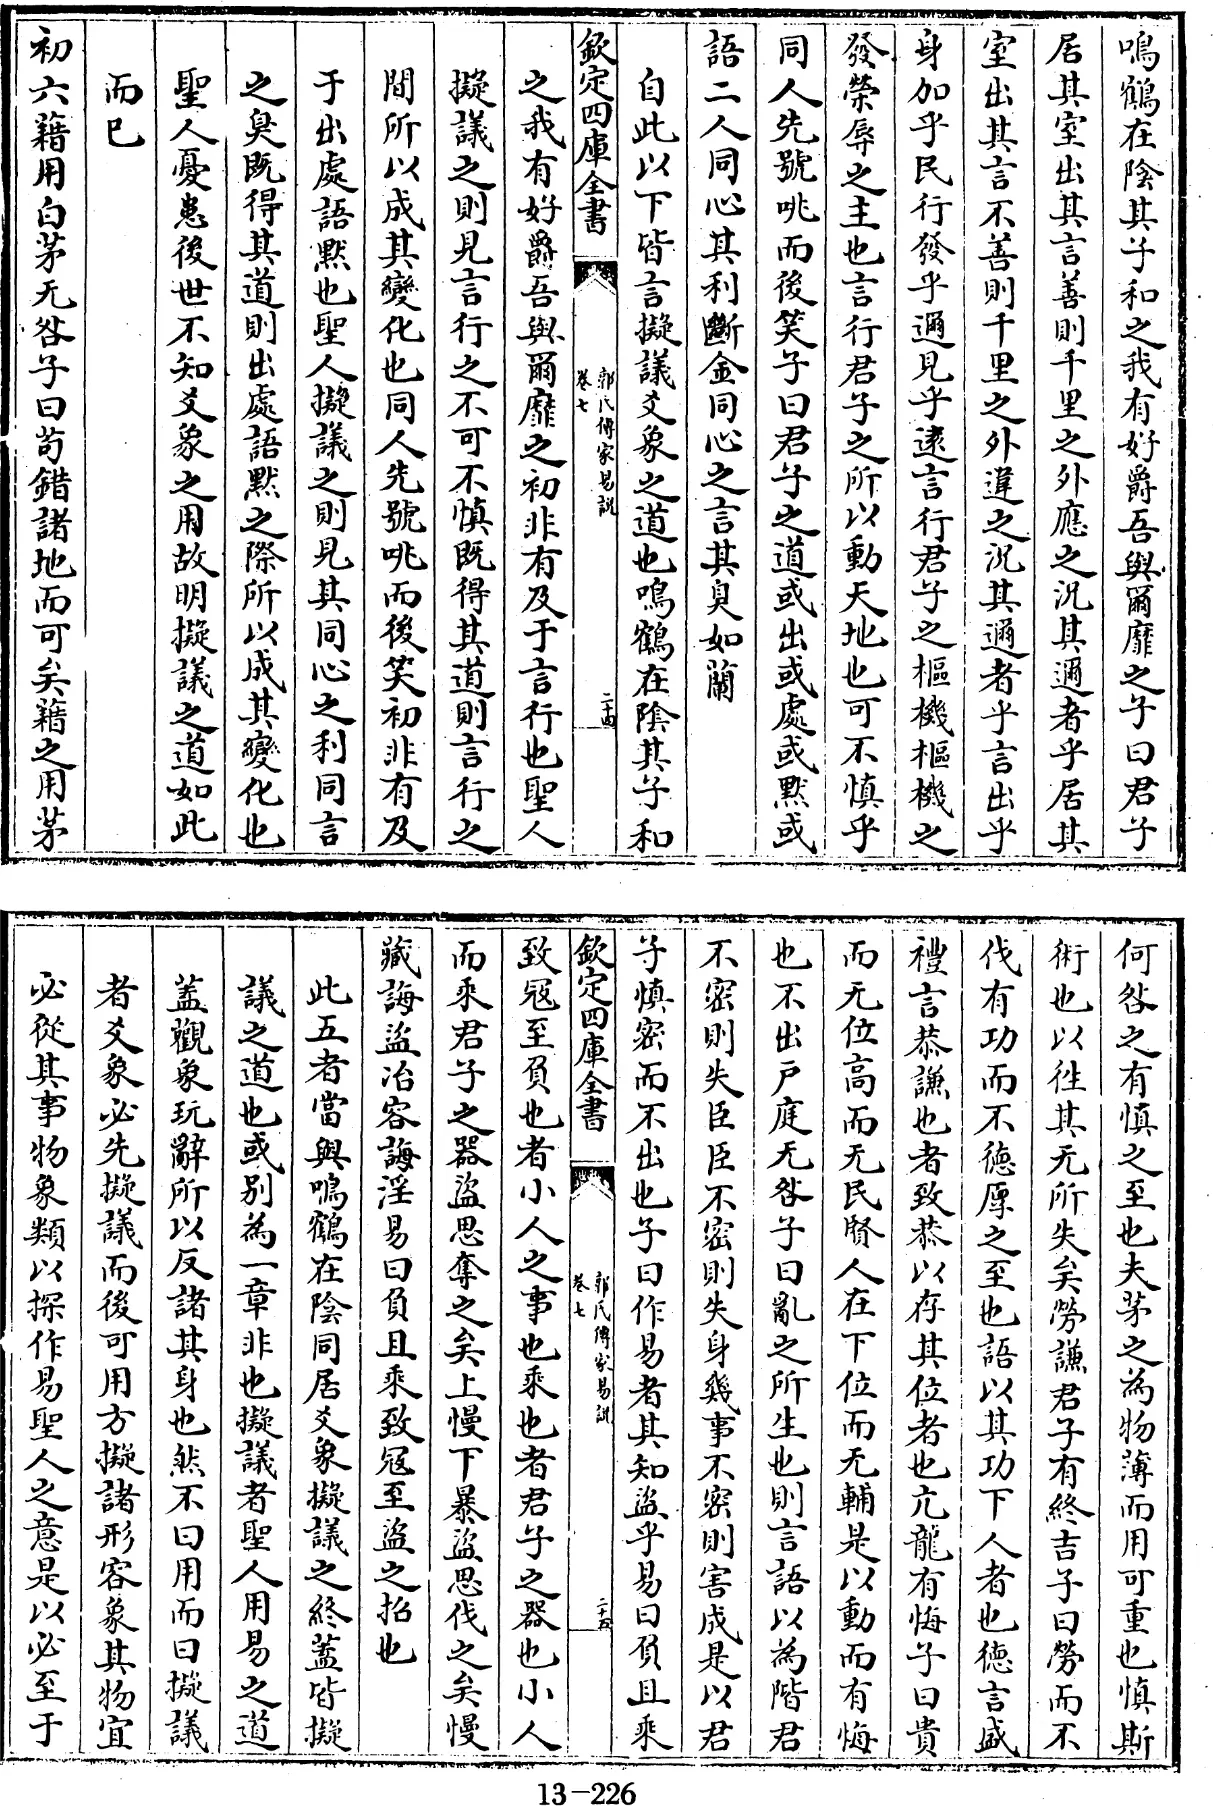 鳴鶴在隂其子和之我有好爵吾與爾靡之子曰君子
居其室出其言善則千里之外應之況其邇者乎居其
室出其言不善則千里之外違之況其邇者乎言出乎
身加乎民行發乎邇見乎逺言行君子之樞機樞機之
發榮辱之主也言行君子之所以動天地也可不慎乎
同人先號咷而後笑子曰君子之道或出或處或黙或
語二人同心其利斷金同心之言其臭如蘭
自此以下皆言擬議爻象之道也鳴鶴在隂其子和
欽定四庫全書
郭氏傳家易說
卷七
二十四
之我有好爵吾與爾靡之初非有及于言行也聖人
擬議之則見言行之不可不慎既得其道則言行之
間所以成其變化也同人先號咷而後笑初非有及
于出處語黙也聖人擬議之則見其同心之利同言
之臭既得其道則出處語黙之際所以成其變化也
聖人憂患後世不知爻象之用故明擬議之道如此
而已
初六藉用白茅无咎子曰茍錯諸地而可矣藉之用茅
何咎之有慎之至也夫茅之為物薄而用可重也慎斯
術也以徃其无所失矣勞謙君子有終吉子曰勞而不
伐有功而不德厚之至也語以其功下人者也德言盛
禮言恭謙也者致恭以存其位者也亢龍有悔子曰貴
而无位髙而无民賢人在下位而无輔是以動而有悔
也不出户庭无咎子曰亂之所生也則言語以為階君
不宻則失臣臣不宻則失身幾事不宻則害成是以君
子慎宻而不出也子曰作易者其知盜乎易曰負且乘
欽定四庫全書
郭氏傳家易說
卷七
二十五
致宼至負也者小人之事也乘也者君子之器也小人
而乘君子之器盜思奪之矣上慢下暴盜思伐之矣慢
藏誨盜冶容誨淫易曰負且乘致宼至盜之招也
此五者當與鳴鶴在陰同居爻象擬議之終蓋皆擬
議之道也或别為一章非也擬議者聖人用易之道
蓋觀象玩辭所以反諸其身也然不曰用而曰擬議
者爻象必先擬議而後可用方擬諸形容象其物宜
必從其事物象類以探作易聖人之意是以必至于
13-226